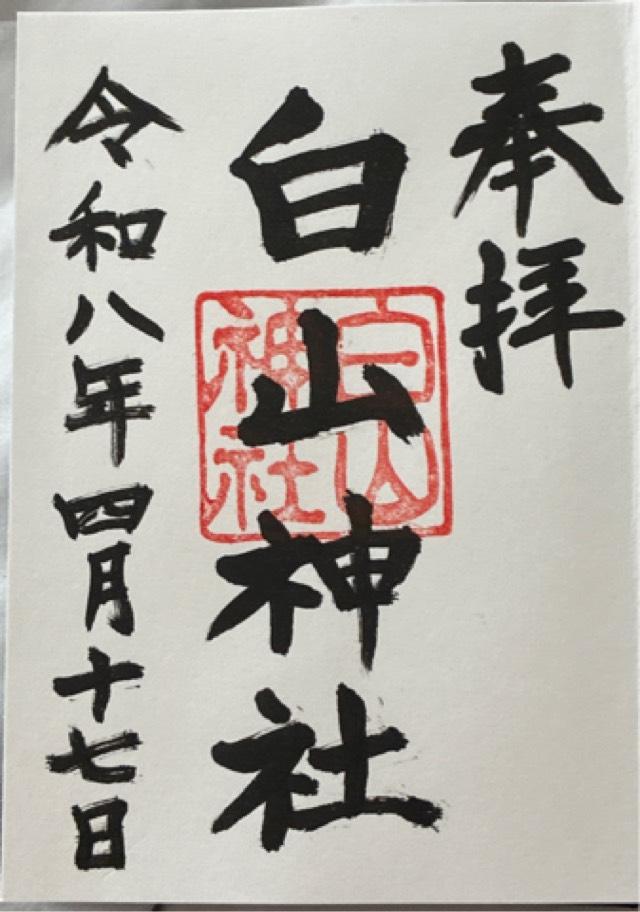 奉拝
白山神社
白山神社
令和八年四月十七日